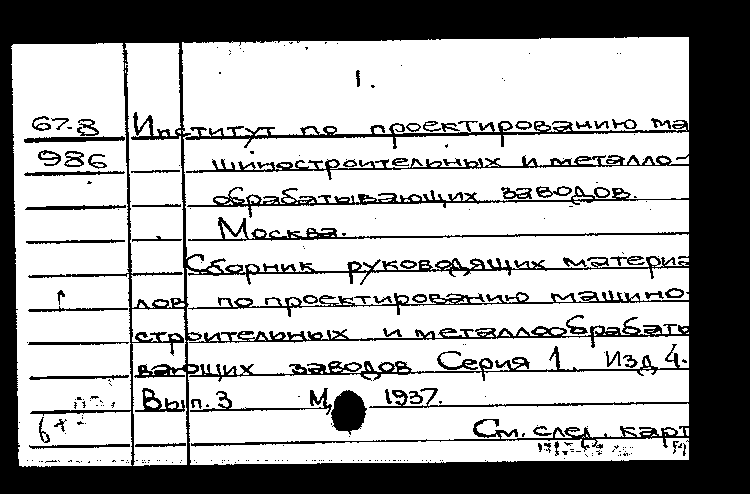 1.
67-8 Институт по проектированию ма
986 шиностроительных и металло-
обрабатывающих заводов.
Москва.
Сборник руководящих материа
лов по проектированию машино-
строительных и металлообрабаты
вающих заводов Серия 1. Изд 4.
Вып. 3 М, 1937.
См. след. карт